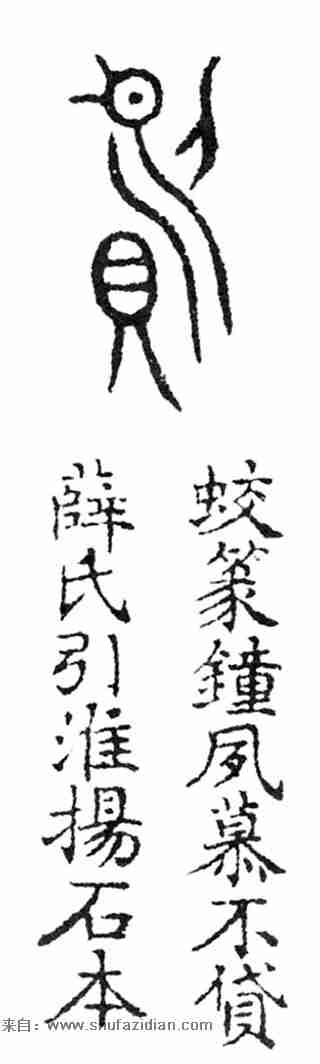 蛟篆鐘夙慕不貸
薛氏引淮揚石本
来自：www.shufazidian.com